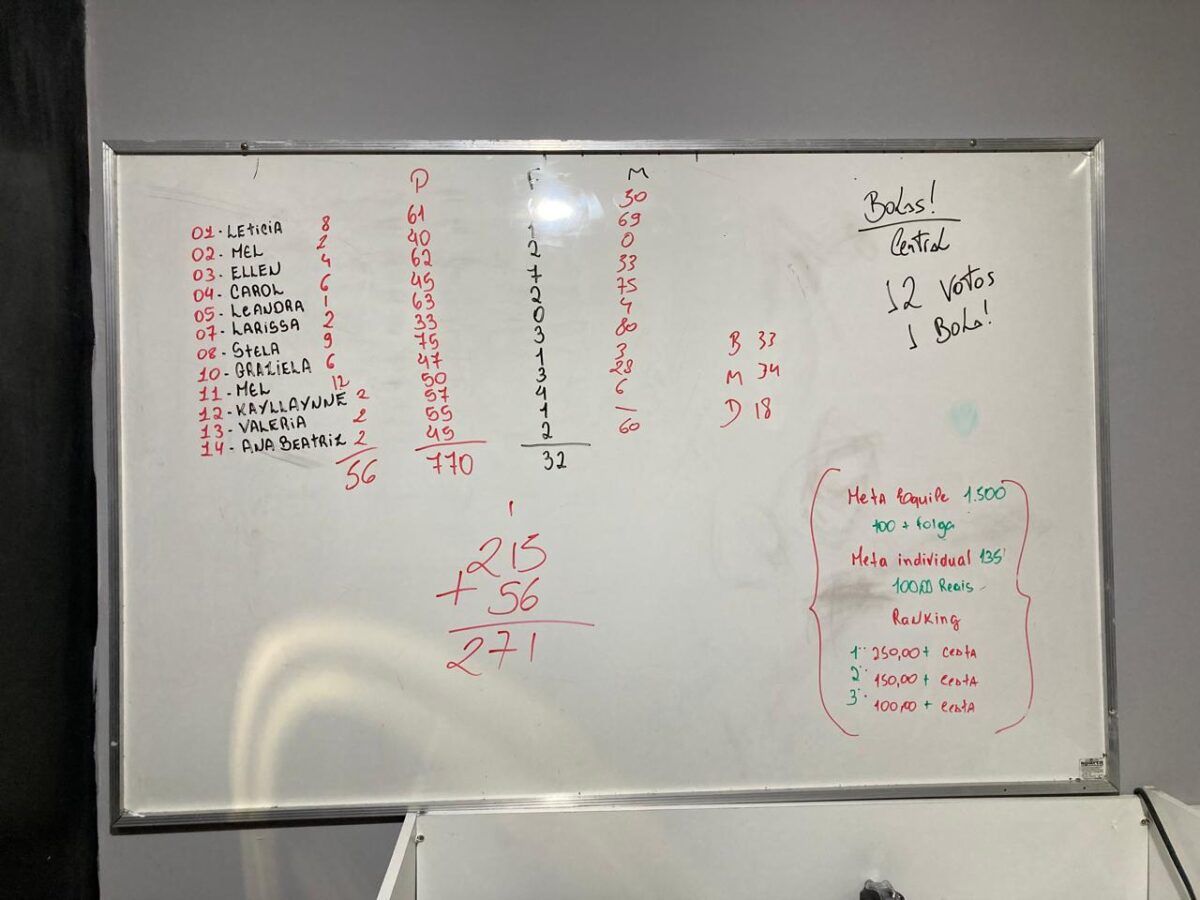 P F M
30
01 - LETICIA 8 61 1 69
02 - MEL 2 40 2 0
03 - ELLEN 4 62 7 33
04 - CAROL 6 45 2 75
05 - LEANDRA 1 63 0 4
07 - LARISSA 2 33 3 80
08 - STELA 9 75 1 3
10 - GRAZIELA 6 47 3 28
11 - MEL 12 50 4 6
12 - KAYLLAYNNE 2 57 1 —
13 - VALERIA 2 55 2 60
14 - ANA BEATRIZ 2 45
56 770 32
1
215
+ 56
271
B 33
M 34
D 18
BOLOS!
Central
12 VOTOS
1 BOLO!
Meta Equipe 1.500
100 + folga
Meta individual 135
100,00 Reais
Ranking
1º 250,00 + Cesta
2º 150,00 + Cesta
3º 100,00 + Cesta